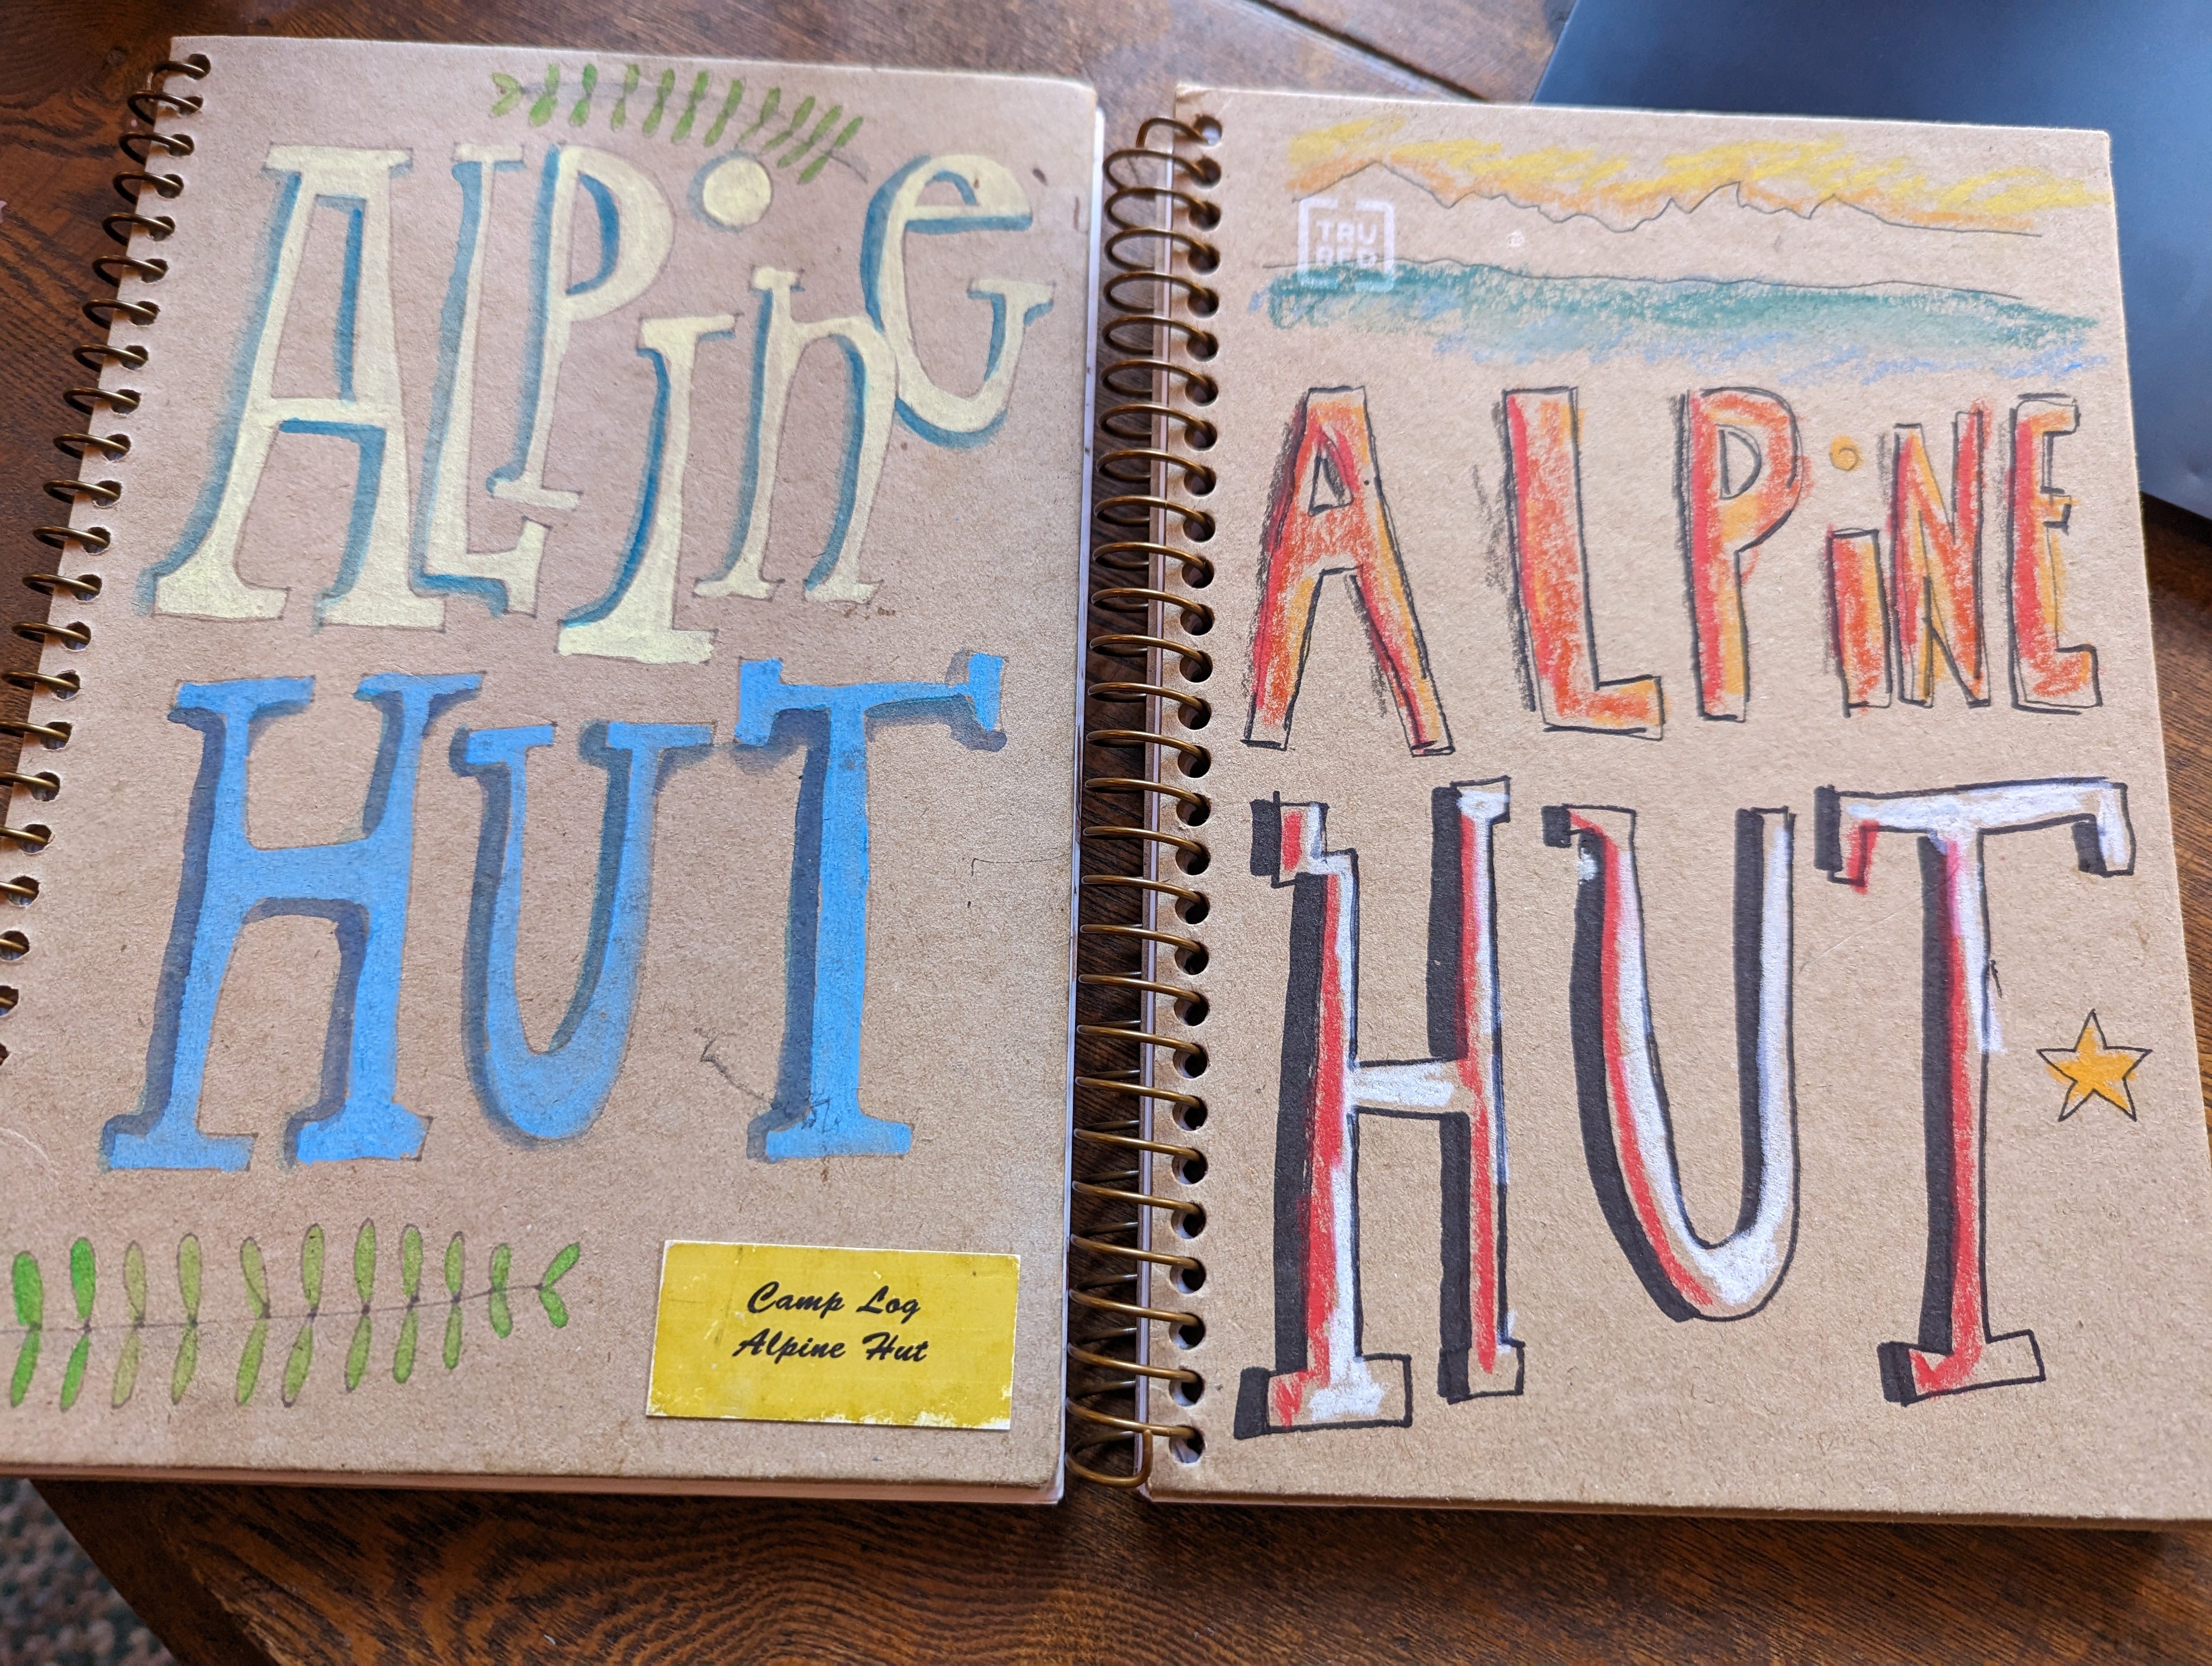 ALPinE
HUT
Camp Log
Alpine Hut
TRU
RED
ALPiNE
HUT